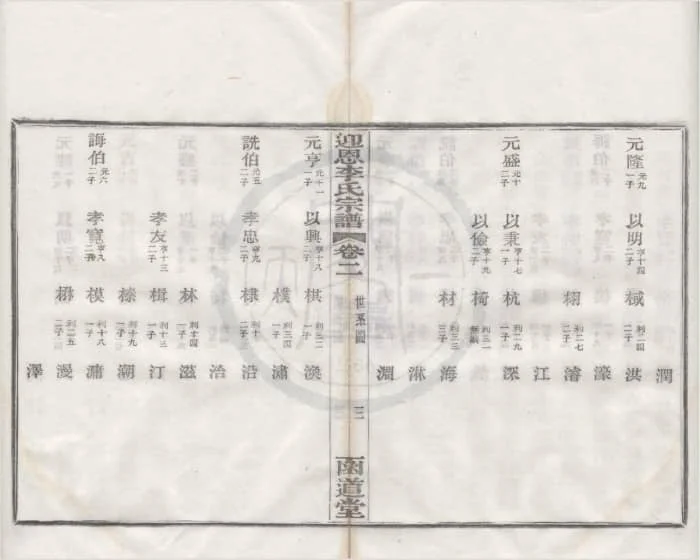 元隆 元九 一子
以明 亨十四 二子
棫 利二四 二子
洪
潤
濠
栩 利二七 二子
濬
江
元盛 元十 二子
以秉 亨十七 一子
杭 利二九 一子
深
以儉 亨十九 二子
椅 利三一
材 利三三 三子
海
淋
淵
迎恩李氏宗譜 卷二 世系圖 三 函道堂
元亨 元十一 一子
以興 亨十八 二子
棋 利三二 一子
渙
樸 利三四 一子
潚
詵伯 元五 二子
孝忠 亨九 二子
棣 利十 二子
沿
治
林 利十四 一子
滋
孝友 亨十三 一子
楫 利十三 一子
汀
榛 利十九 一子
潮
誨伯 元六 二子
孝寬 亨八 二子
模 利十八 一子
滽
利二五 二子
漫
澤